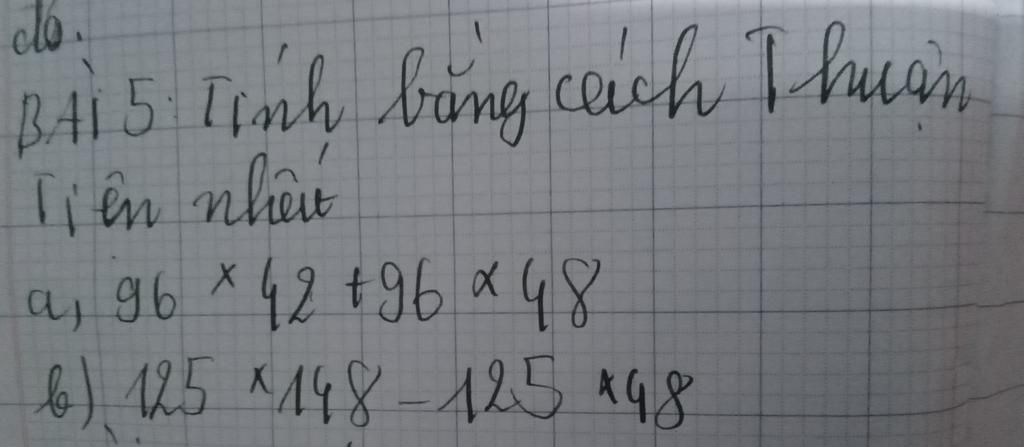 đó.
BÀi 5: Tính bằng cách Thuận
Tiện nhất
a, 96 × 42 + 96 × 48
b) 125 × 148 - 125 × 48